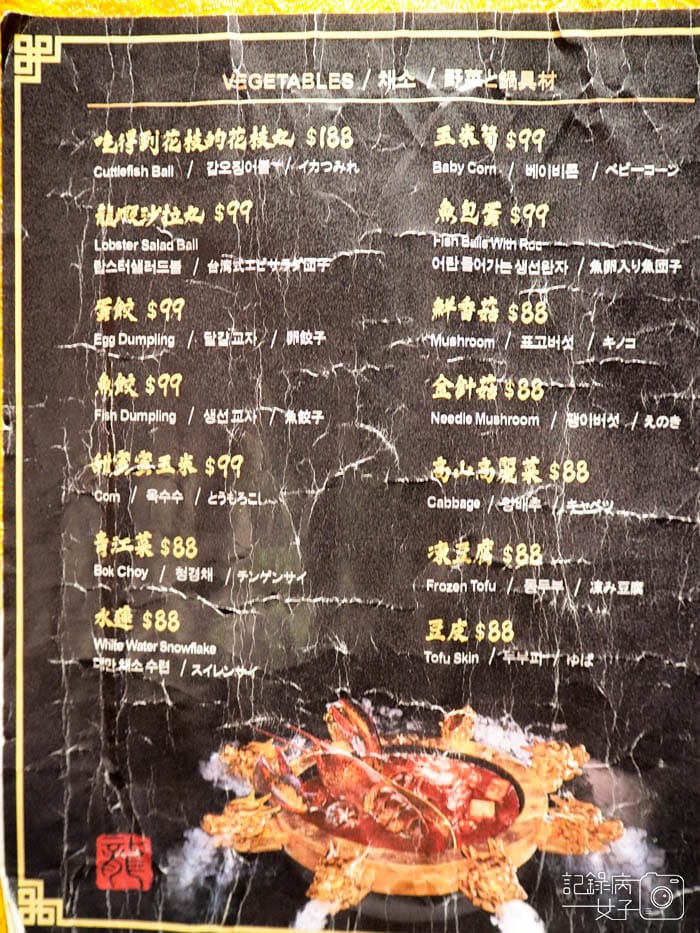 VEGETABLES / 채소 / 野菜と鍋具材
吃得到花枝的花枝丸 $188
Cuttlefish Ball / 갑오징어볼 / イカつみれ
龍蝦沙拉丸 $99
Lobster Salad Ball
랍스터샐러드볼 / 台湾式エビサラダ団子
蛋餃 $99
Egg Dumpling / 달걀 교자 / 卵餃子
魚餃 $99
Fish Dumpling / 생선 교자 / 魚餃子
甜蜜蜜玉米 $99
Corn / 옥수수 / とうもろこし
青江菜 $88
Bok Choy / 청경채 / チンゲンサイ
水蓮 $88
White Water Snowflake
대만 채소 수련 / スイレンサイ
玉米筍 $99
Baby Corn / 베이비콘 / ベビーコーン
魚包蛋 $99
Fish Balls With Roe
어란 들어가는 생선완자 / 魚卵入り魚団子
鮮香菇 $88
Mushroom / 표고버섯 / キノコ
金針菇 $88
Needle Mushroom / 팽이버섯 / えのき
高山高麗菜 $88
Cabbage / 양배추 / キャベツ
凍豆腐 $88
Frozen Tofu / 동두부 / 凍み豆腐
豆皮 $88
Tofu Skin / 두부피 / ゆば
龍
記錄病
女子